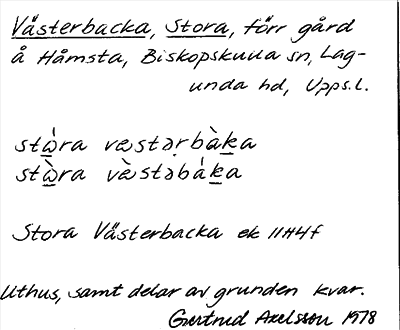 Västerbacka, Stora, förr gård
å Håmsta, Biskopskulla sn, Lag-
unda hd, Upps.l.
stώ̲ra væstər̩bàk̲a
stὼ̲ra væ̀stəbák̲a
Stora Västerbacka ek 11H4f
Uthus, samt delar av grunden kvar.
Gertrud Axelsson 1978